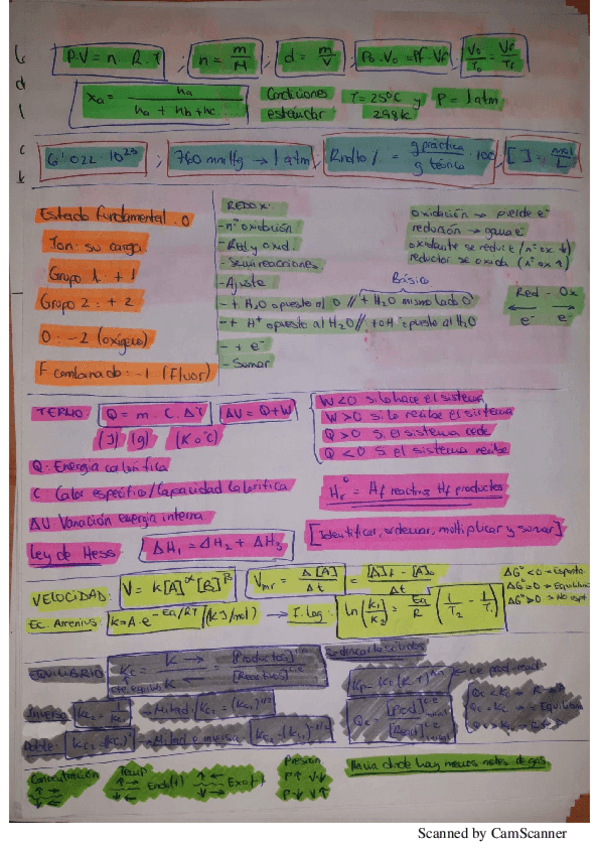 P·V = n · R · T ; n = m/M ; d = m/V ; P₀·V₀ = Pf·Vf ; V₀/T₀ = Vf/Tf
Xa = na / na + nb + nc
Condiciones estándar
T = 25ºC y P = 1 atm
298 K
6'022 · 10²³ ; 760 mmHg → 1 atm ; Rndto % = g práctica / g teórica · 100 ; [ ] = mol/L
Estado fundamental: 0
Ion: su carga
Grupo 1: +1
Grupo 2: +2
O: -2 (oxígeno)
F combinado: -1 (Fluor)
REDOX:
- nº oxidación
- Red y oxid.
- Semirreacciones
- Ajuste
Básico
- + H₂O opuesto al O // + H₂O mismo lado O
- + H⁺ opuesto al H₂O // + OH⁻ opuesto al H₂O
- + e⁻
- Sumar
oxidación → pierde e⁻
reducción → gana e⁻
oxidante se reduce (nº ox ↓)
reductor se oxida (nº ox ↑)
Red - Ox
← →
e⁻ e⁻
TERMO: Q = m · C · ΔT ; ΔU = Q + W
(J) (g) (K o ºC)
W < 0 si lo hace el sistema
W > 0 si lo recibe el sistema
Q > 0 si el sistema cede
Q < 0 si el sistema recibe
Q: Energía calorífica
C: Calor específico/Capacidad calorífica
ΔU: Variación energía interna
Ley de Hess: ΔH₁ = ΔH₂ + ΔH₃
Hrº = Hf reactivos Hf productos
[Identificar, ordenar, multiplicar y sumar]
VELOCIDAD: V = K[A]^α [B]^β
Vmr = Δ[A]/Δt = [A]f - [A]₀ / Δt
ΔGº < 0 → Espontá.
ΔGº = 0 → Equilibrio
ΔGº > 0 → No espt
Ec. Arrenius: k = A · e^(-Ea/RT) (KJ/mol) → T. log: ln(k₁/k₂) = Ea/R (1/T₂ - 1/T₁)
EQUILIBRIO
Kc = K → [Productos] / K ← [Reactivos]
cte equilib
Qc = [Prod] / [React]
Inverso: Kc₂ = 1/Kc₁
- Mitad: Kc₂ = (Kc₁)^1/2
Doble:
- Mitad e inversa: Kc₂ = (Kc₁)^-1/2
Concentración
Temp
Endo(+) Exo(-)
Presión
P↑ V↓
P↓ V↑
Hacia donde hay menos moles de gas
Scanned by CamScanner